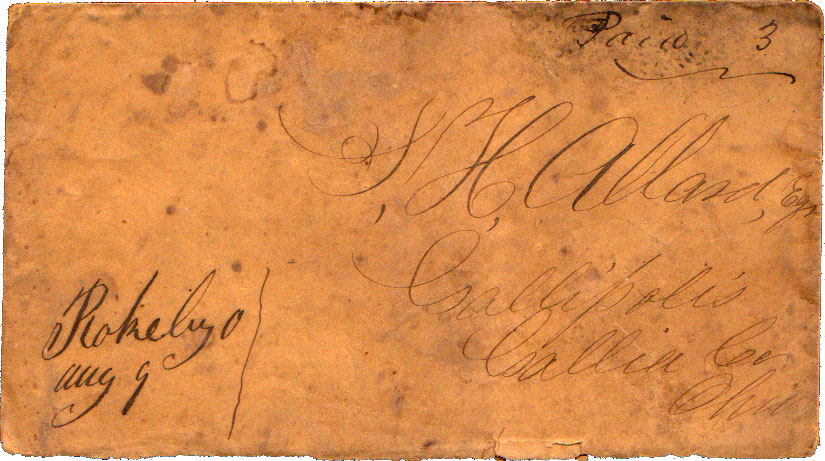 Paid 3
S, H, Allard, Esqr
Gallipolis
Gallia Co
Ohio
Rokeby O
aug 9